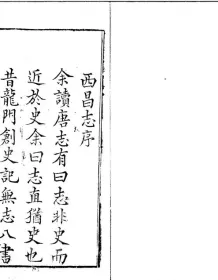 西昌志序
余讀唐志有曰志非史而
近於史余曰志直猶史也
昔龍門創史記無志八書